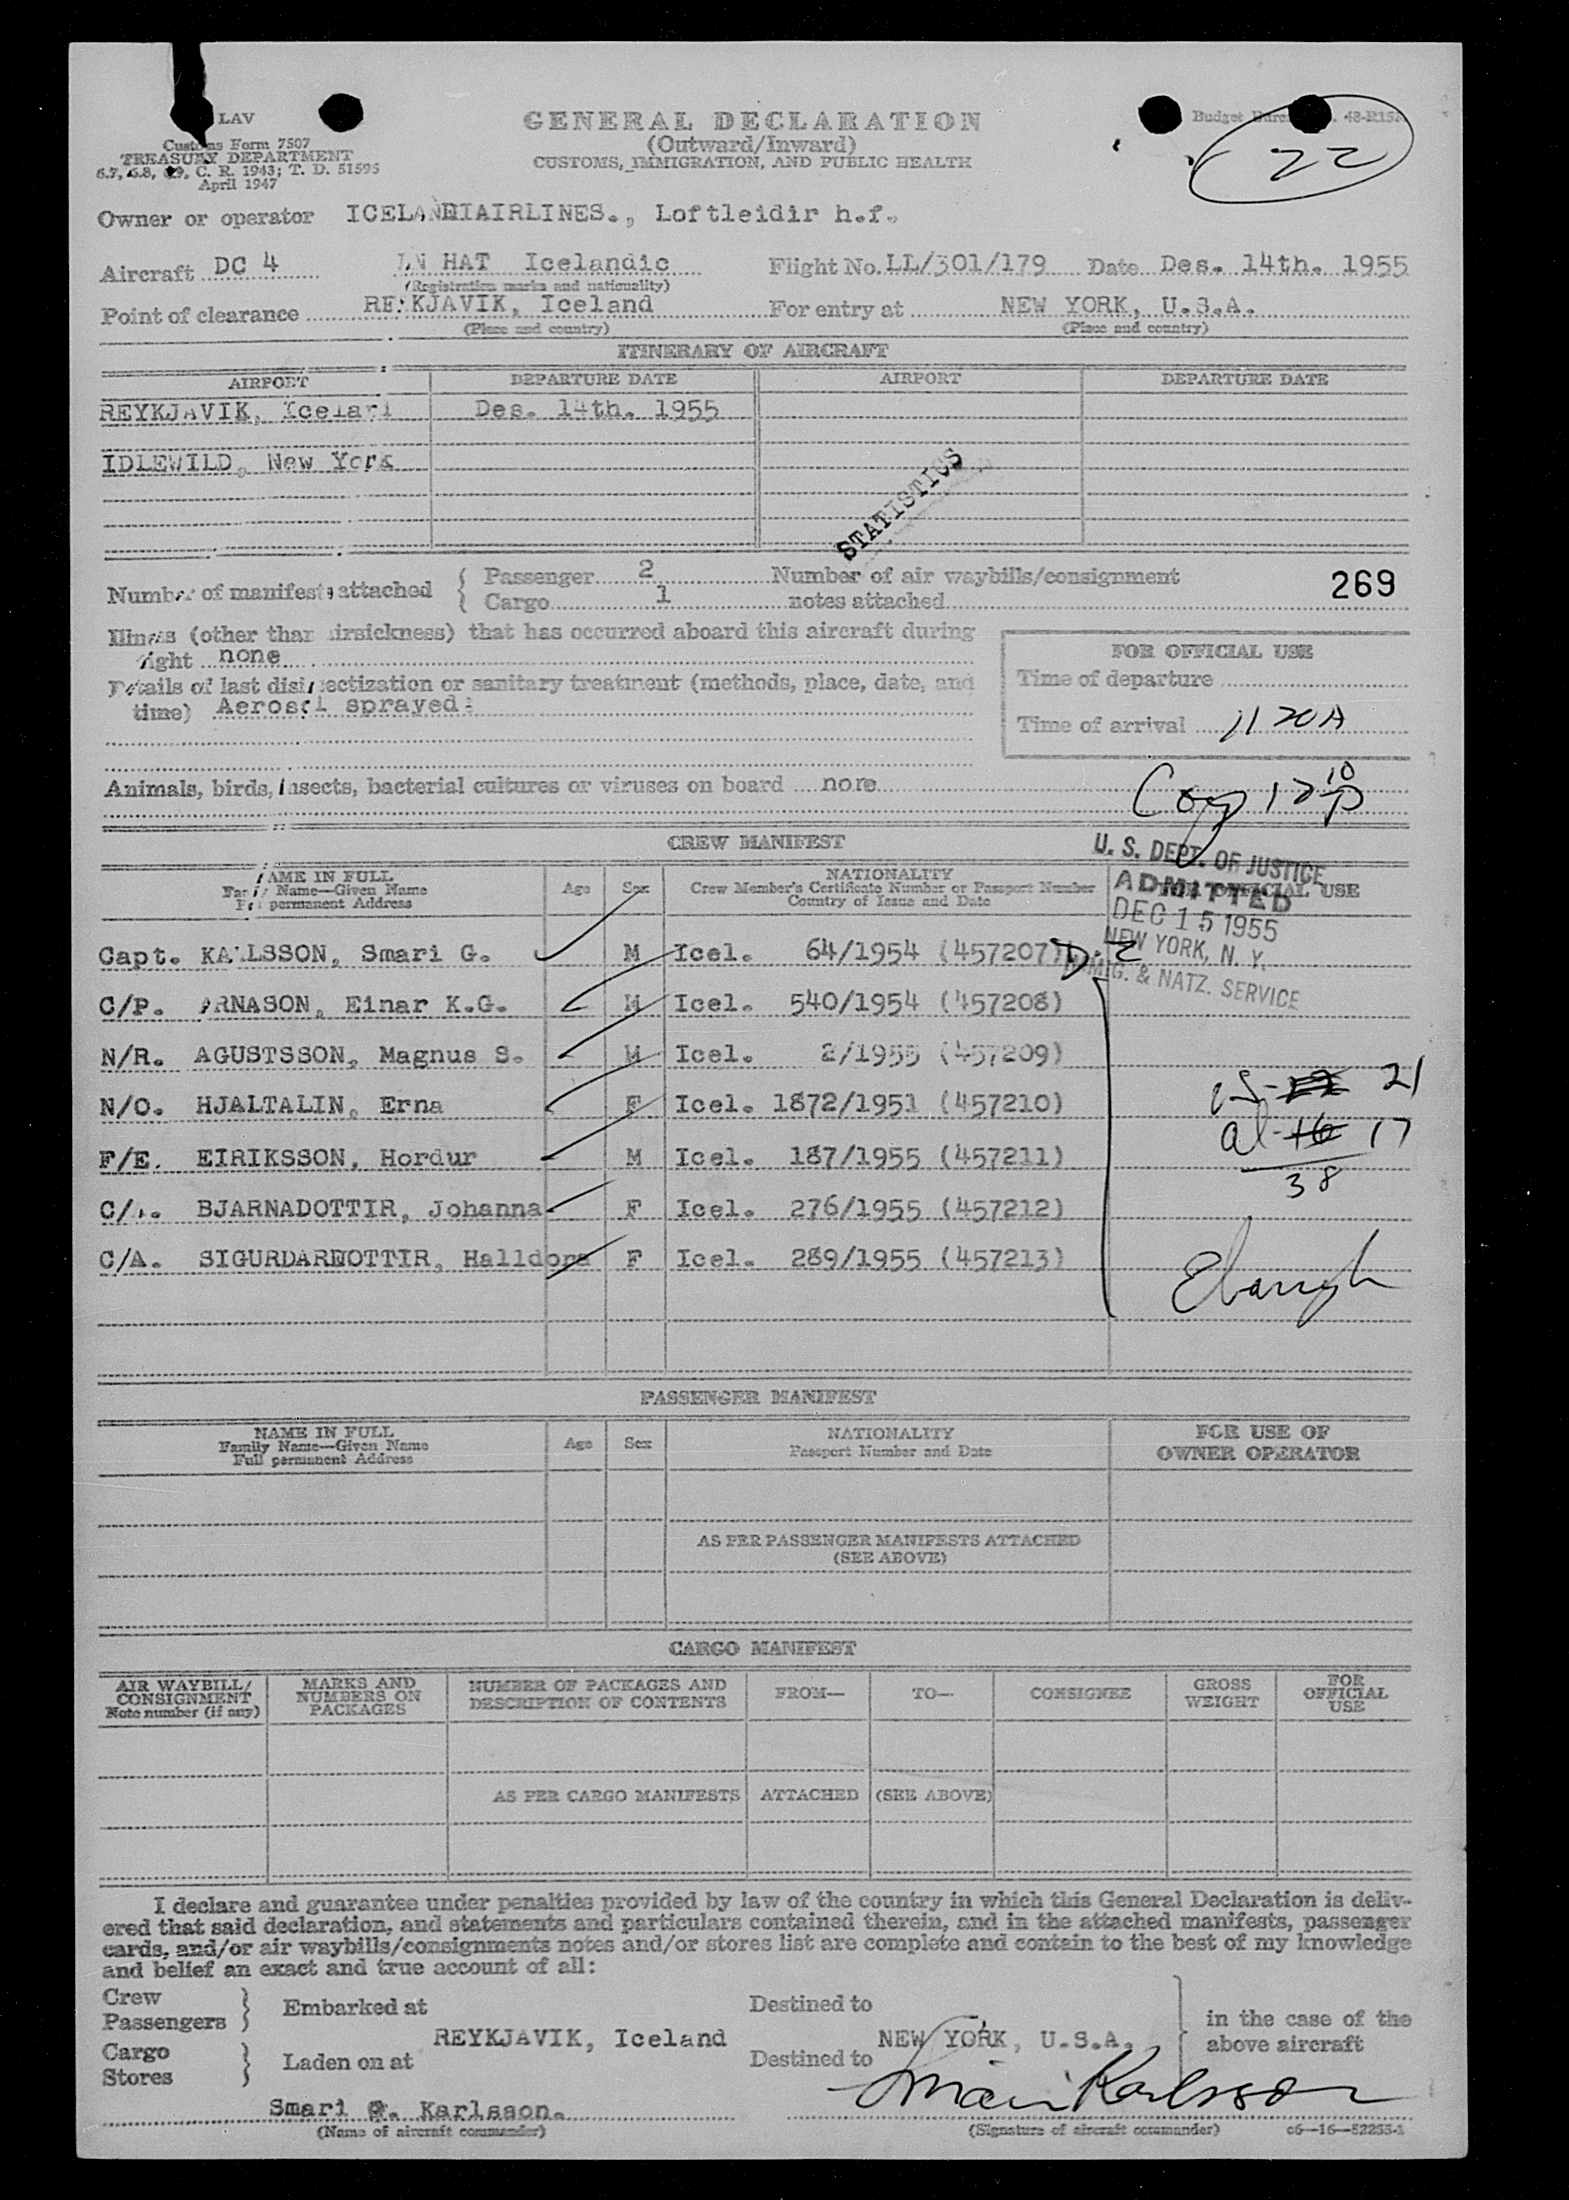 LAV
Customs Form 7507
TREASURY DEPARTMENT
6.7, 6.8, 6.9, C. R. 1943; T. D. 51595
April 1947
GENERAL DECLARATION
(Outward/Inward)
CUSTOMS, IMMIGRATION, AND PUBLIC HEALTH
Budget
22
Owner or operator ICELAND AIRLINES., Loftleidir h.f.
Aircraft DC 4 HAT Icelandic Flight No. LL/301/179 Date Des. 14th. 1955
(Registration marks and nationality)
Point of clearance REYKJAVIK, Iceland For entry at NEW YORK, U.S.A.
(Place and country) (Place and country)
ITINERARY OF AIRCRAFT
AIRPORT DEPARTURE DATE AIRPORT DEPARTURE DATE
REYKJAVIK, Iceland Des. 14th. 1955
IDLEWILD, New York
STATISTICS
Number of manifests attached { Passenger 2 Number of air waybills/consignment
Cargo 1 notes attached
269
Illness (other than airsickness) that has occurred aboard this aircraft during
flight none
Details of last disinsectization or sanitary treatment (methods, place, date, and
time) Aerosol sprayed:
FOR OFFICIAL USE
Time of departure
Time of arrival 11 20 A
Animals, birds, insects, bacterial cultures or viruses on board none
12 10 P
CREW MANIFEST
NAME IN FULL
Family Name—Given Name
Full permanent Address
Age Sex
NATIONALITY
Crew Member's Certificate Number or Passport Number
Country of Issue and Date
OFFICIAL USE
U. S. DEPT. OF JUSTICE
ADMITTED
DEC 15 1955
NEW YORK, N. Y.
IMMIG. & NATZ. SERVICE
Capt. KARLSSON, Smari G. M Icel. 64/1954 (457207) D-2
C/P. ARNASON, Einar K.G. M Icel. 540/1954 (457208)
N/R. AGUSTSSON, Magnus S. M Icel. 2/1955 (457209)
N/O. HJALTALIN, Erna F Icel. 1872/1951 (457210)
F/E. EIRIKSSON, Hordur M Icel. 187/1955 (457211)
C/A. BJARNADOTTIR, Johanna F Icel. 276/1955 (457212)
C/A. SIGURDARDOTTIR, Halldora F Icel. 289/1955 (457213)
21
al-16 17
38
PASSENGER MANIFEST
NAME IN FULL
Family Name—Given Name
Full permanent Address
Age Sex
NATIONALITY
Passport Number and Date
FOR USE OF
OWNER OPERATOR
AS PER PASSENGER MANIFESTS ATTACHED
(SEE ABOVE)
CARGO MANIFEST
AIR WAYBILL/
CONSIGNMENT
Note number (if any)
MARKS AND
NUMBERS ON
PACKAGES
NUMBER OF PACKAGES AND
DESCRIPTION OF CONTENTS
FROM— TO— CONSIGNEE
GROSS
WEIGHT
FOR
OFFICIAL
USE
AS PER CARGO MANIFESTS ATTACHED (SEE ABOVE)
I declare and guarantee under penalties provided by law of the country in which this General Declaration is deliv-
ered that said declaration, and statements and particulars contained therein, and in the attached manifests, passenger
cards, and/or air waybills/consignments notes and/or stores list are complete and contain to the best of my knowledge
and belief an exact and true account of all:
Crew
Passengers } Embarked at Destined to
REYKJAVIK, Iceland NEW YORK, U.S.A.
Cargo
Stores } Laden on at Destined to
in the case of the
above aircraft
Smari G. Karlsson. Smári Karlsson
(Name of aircraft commander) (Signature of aircraft commander) c6—16—52255-1